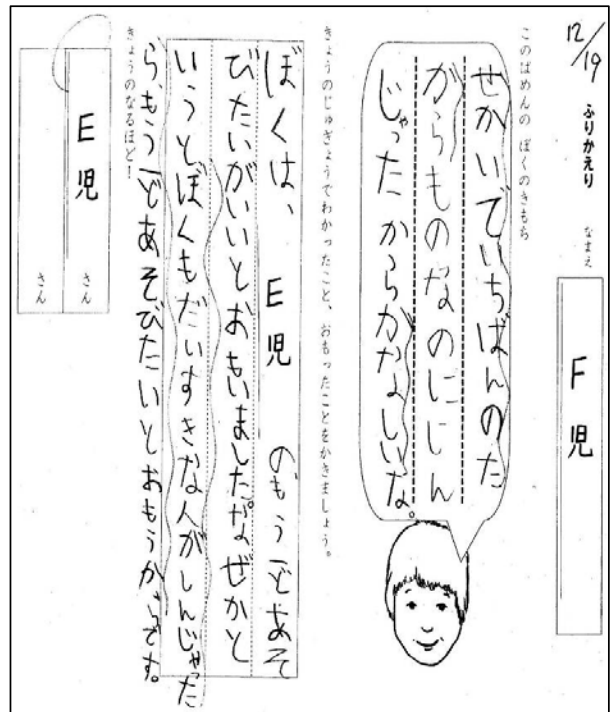 12/19 ふりかえり なまえ
F児
このばめんの ぼくのきもち
せかいでいちばんのた
からものなのにしん
じゃった からかなしいな。
きょうのじゅぎょうでわかったこと、おもったことをかきましょう。
ぼくは、 E児 のもう一どあそ
びたいがいいとおもいました。なぜかと
いうとぼくもだいすきな人がしんじゃった
ら、もう一どあそびたいとおもうからです。
きょうのなるほど!
E児 さん
さん